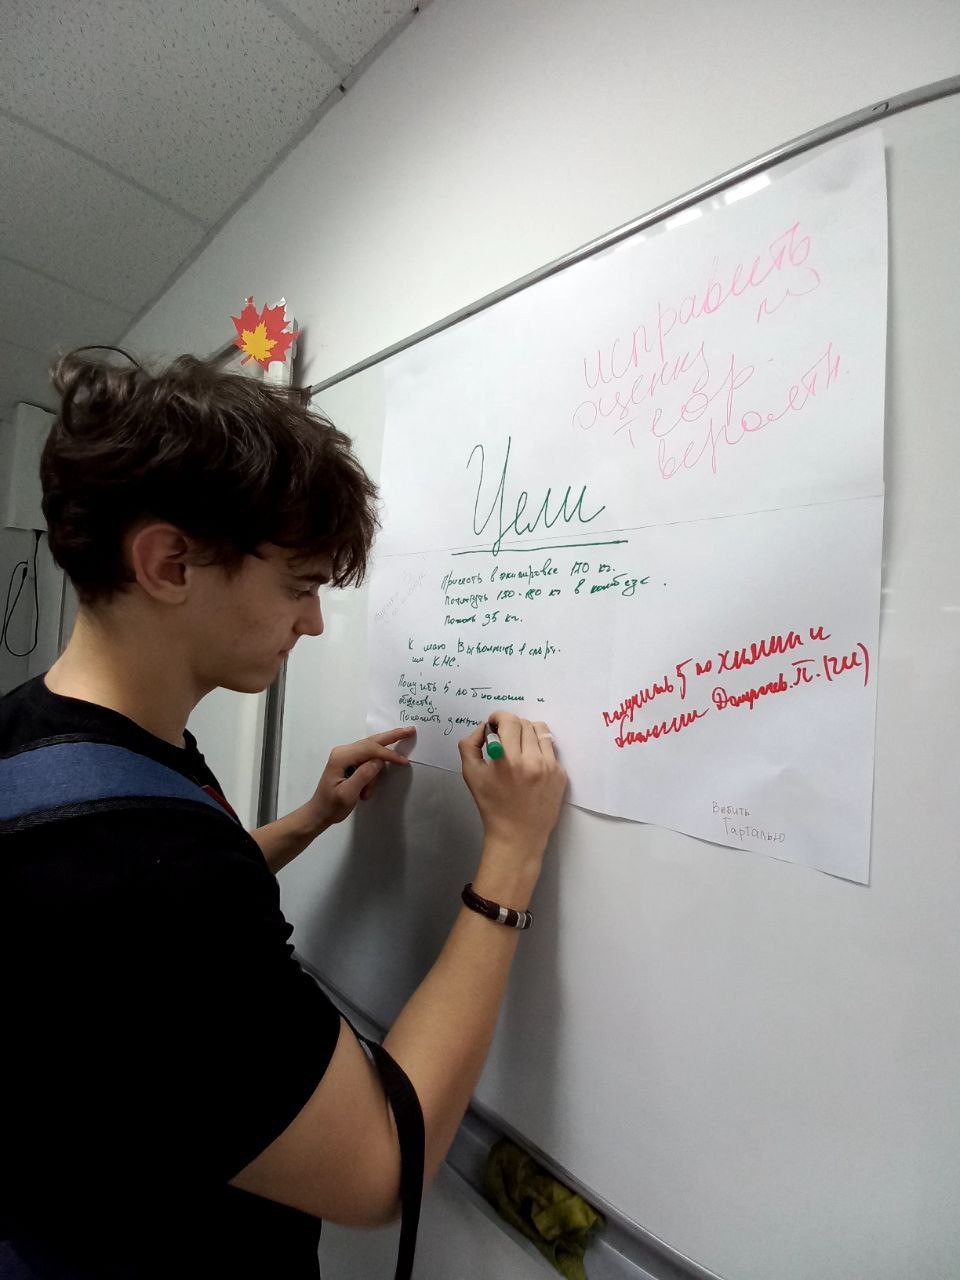 исправить
оценку по
теор.
вероятн.
Цели
Присесть в экипировке 170 кг.
Потянуть 150-180 кг в комбезе.
Пожать 95 кг.
К маю Выполнить 1 спорт.
КМС.
Получить 5 по Биологии и
обществу.
Получить 5 по химии и
биологии П. (2И)
Выбить
Тарталью